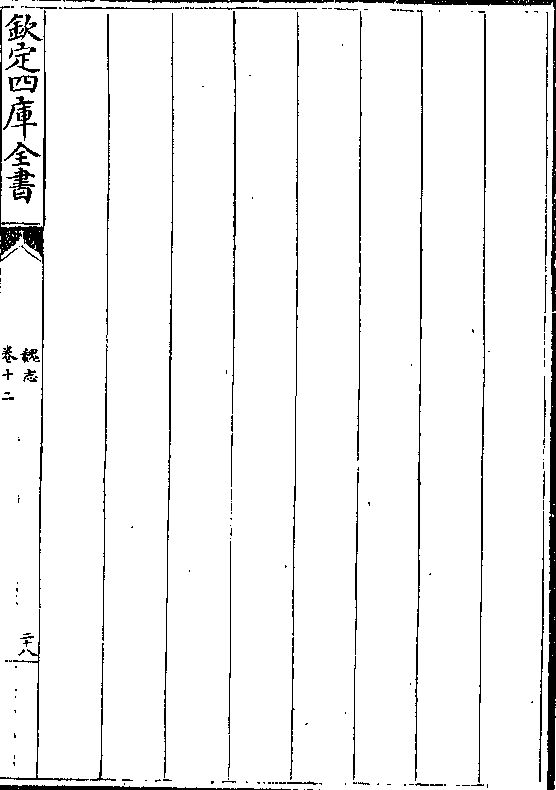 欽定四庫全書
魏志
卷十二
二十八